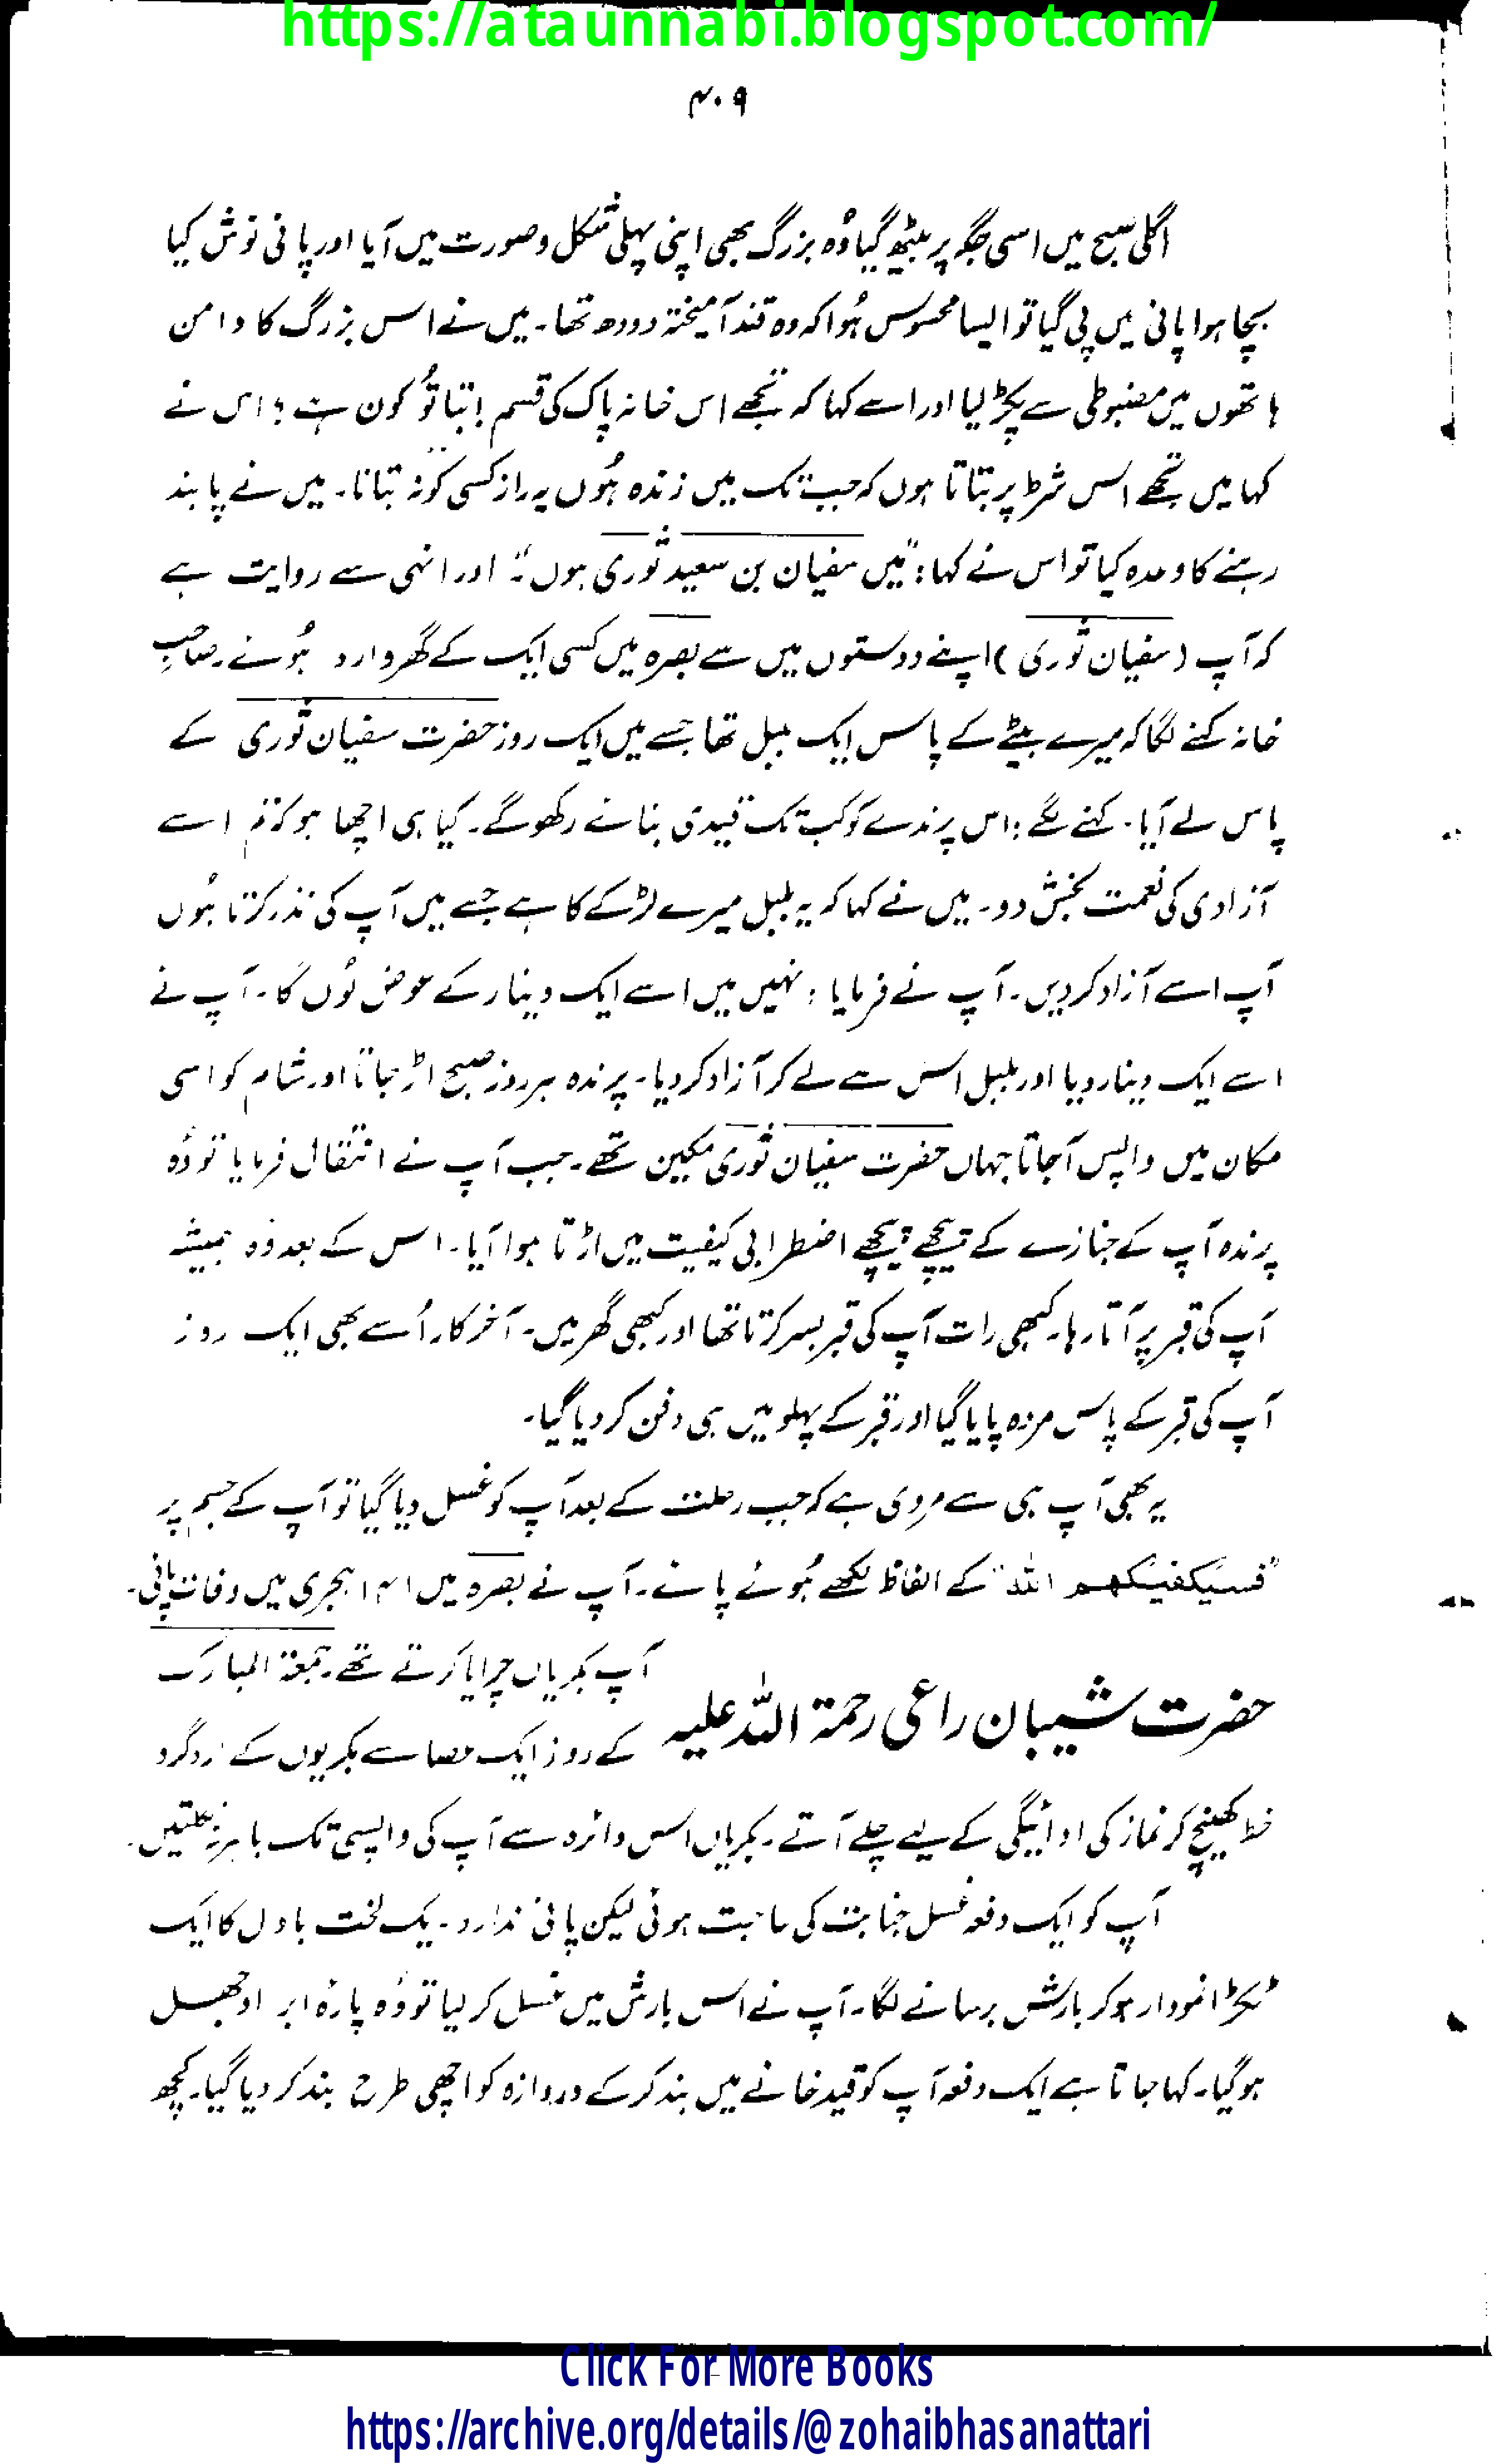 https://ataunnabi.blogspot.com/
۴۰۹
اگلی صبح میں اسی جگہ پر بیٹھ گیا وُہ بزرگ بھی اپنی پہلی شکل و صورت میں آیا اور پانی نوش کیا
بچا ہوا پانی میں پی گیا تو ایسا محسوس ہُوا کہ وہ قند آمیختہ دودھ تھا۔ میں نے اس بزرگ کا دامن
ہاتھوں میں مضبوطی سے پکڑ لیا اور اسے کہا کہ تجھے اس خانہ پاک کی قسم! بتا تُو کون ہے؟ اس نے
کہا میں تجھے اس شرط پر بتاتا ہوں کہ جب تک میں زندہ ہُوں یہ راز کسی کو نہ بتانا۔ میں نے پابند
رہنے کا وعدہ کیا تو اس نے کہا: "میں سفیان بن سعید ثوری ہوں"۔ اور انہی سے روایت ہے
کہ آپ (سفیان ثوری) اپنے دوستوں میں سے بصرہ میں کسی ایک کے گھر وارد ہُوئے۔ صاحبِ
خانہ کہنے لگا کہ میرے بیٹے کے پاس ایک بلبل تھا جسے میں ایک روز حضرت سفیان ثوری کے
پاس لے آیا۔ کہنے لگے: اس پرندے کو کب تک قیدی بنائے رکھو گے۔ کیا ہی اچھا ہو کہ تم اسے
آزادی کی نعمت بخش دو۔ میں نے کہا کہ یہ بلبل میرے لڑکے کا ہے جسے میں آپ کی نذر کرتا ہُوں
آپ اسے آزاد کر دیں۔ آپ نے فرمایا: نہیں میں اسے ایک دینار کے عوض لُوں گا۔ آپ نے
اسے ایک دینار دیا اور بلبل اس سے لے کر آزاد کر دیا۔ پرندہ ہر روز صبح اڑ جاتا اور شام کو اسی
مکان میں واپس آجاتا جہاں حضرت سفیان ثوری مکین تھے۔ جب آپ نے انتقال فرمایا تو وُہ
پرندہ آپ کے جنازے کے پیچھے پیچھے اضطرابی کیفیت میں اڑتا ہوا آیا۔ اس کے بعد وُہ ہمیشہ
آپ کی قبر پر آتا رہا۔ کبھی رات آپ کی قبر بسر کرتا تھا اور کبھی گھر میں۔ آخر کار اُسے بھی ایک روز
آپ کی قبر کے پاس مردہ پایا گیا اور قبر کے پہلو میں ہی دفن کر دیا گیا۔
یہ بھی آپ ہی سے مروی ہے کہ جب رحلت کے بعد آپ کو غسل دیا گیا تو آپ کے جسم پر
"فسیکفیکھم اللہ" کے الفاظ لکھے ہُوئے پائے۔ آپ نے بصرہ میں ۱۴۱ ہجری میں وفات پائی۔
حضرت شیبان راعی رحمۃ اللہ علیہ
آپ بکریاں چرایا کرتے تھے۔ جمعۃ المبارک
کے روز ایک عصا سے بکریوں کے اردگرد
خط کھینچ کر نماز کی ادائیگی کے لیے چلے آتے۔ بکریاں اس دائرہ سے آپ کی واپسی تک باہر نہ نکلتیں۔
آپ کو ایک دفعہ غسل جنابت کی حاجت ہوئی لیکن پانی ندارد۔ یک لخت بادل کا ایک
ٹکڑا نمودار ہو کر بارش برسانے لگا۔ آپ نے اس بارش میں غسل کر لیا تو وُہ پارۂ ابر اوجھل
ہو گیا۔ کہا جاتا ہے ایک دفعہ آپ کو قید خانے میں بند کر کے دروازہ کو اچھی طرح بند کر دیا گیا۔ کچھ
Click For More Books
https://archive.org/details/@zohaibhasanattari